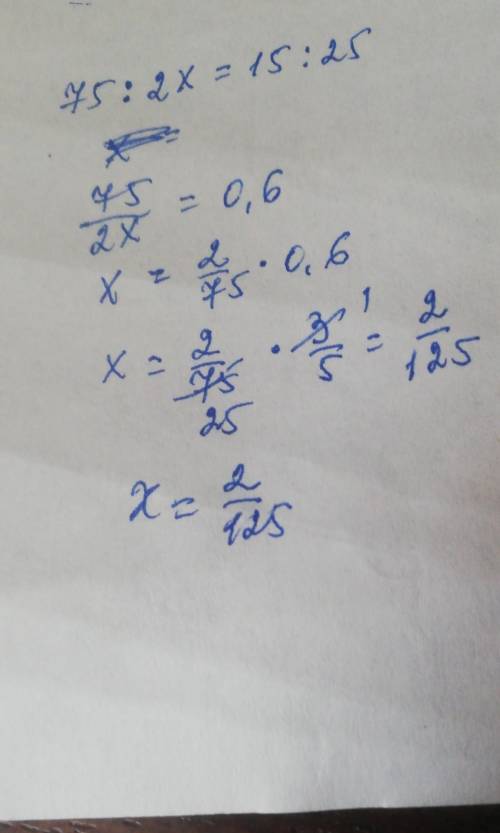 75 : 2x = 15 : 25
x =
75/2x = 0,6
x = 2/75 · 0,6
x = 2/75 25 · 3/5 1 = 2/125
x = 2/125